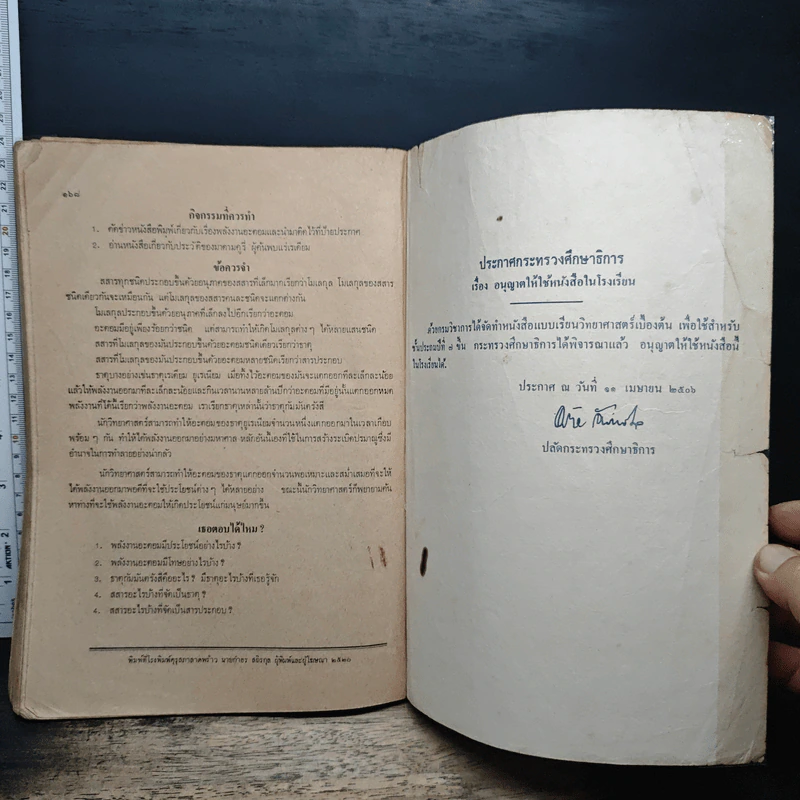 ๑๖๘
กิจกรรมที่ควรทำ
๑. คัดข่าวหนังสือพิมพ์เกี่ยวกับเรื่องพลังงานอะตอมและนำมาติดไว้ที่ป้ายประกาศ
๒. อ่านหนังสือเกี่ยวกับประวัติของมาดามคูรี่ ผู้ค้นพบแร่เรเดียม
ข้อควรจำ
สสารทุกชนิดประกอบขึ้นด้วยอนุภาคของสสารที่เล็กมากเรียกว่าโมเลกุล โมเลกุลของสสาร
ชนิดเดียวกันจะเหมือนกัน แต่โมเลกุลของสสารคนละชนิดจะแตกต่างกัน
โมเลกุลประกอบขึ้นด้วยอนุภาคที่เล็กลงไปอีกเรียกว่าอะตอม
อะตอมมีอยู่เพียงร้อยกว่าชนิด แต่สามารถทำให้เกิดโมเลกุลต่าง ๆ ได้หลายแสนชนิด
สสารที่โมเลกุลของมันประกอบขึ้นด้วยอะตอมชนิดเดียวเรียกว่าธาตุ
สสารที่โมเลกุลของมันประกอบขึ้นด้วยอะตอมหลายชนิดเรียกว่าสารประกอบ
ธาตุบางอย่างเช่นธาตุเรเดียม ยูเรเนียม เมื่อทิ้งไว้อะตอมของมันจะแตกออกทีละเล็กละน้อย
แล้วให้พลังงานออกมาทีละเล็กละน้อยและกินเวลานานหลายล้านปีกว่าอะตอมที่มีอยู่นั้นแตกออกหมด
พลังงานที่ได้นี้เรียกว่าพลังงานอะตอม เราเรียกธาตุเหล่านั้นว่าธาตุกัมมันตรังสี
นักวิทยาศาสตร์สามารถทำให้อะตอมของธาตุยูเรเนียมจำนวนหนึ่งแตกออกมาในเวลาเกือบ
พร้อม ๆ กัน ทำให้ได้พลังงานออกมาอย่างมหาศาล หลักอันนี้เองที่ใช้ในการสร้างระเบิดปรมาณูซึ่งมี
อำนาจในการทำลายอย่างน่ากลัว
นักวิทยาศาสตร์สามารถทำให้อะตอมของธาตุแตกออกจำนวนพอเหมาะและสม่ำเสมอที่จะให้
ได้พลังงานออกมาพอดีที่จะใช้ประโยชน์ต่าง ๆ ได้หลายอย่าง ขณะนี้นักวิทยาศาสตร์ก็พยายามค้น
หาทางที่จะใช้พลังงานอะตอมให้เกิดประโยชน์แก่มนุษย์มากขึ้น
เธอตอบได้ไหม ?
๑. พลังงานอะตอมมีประโยชน์อย่างไรบ้าง ?
๒. พลังงานอะตอมมีโทษอย่างไรบ้าง ?
๓. ธาตุกัมมันตรังสีคืออะไร ? มีธาตุอะไรบ้างที่เธอรู้จัก
๔. สสารอะไรบ้างที่จัดเป็นธาตุ ?
๕. สสารอะไรบ้างที่จัดเป็นสารประกอบ ?
พิมพ์ที่โรงพิมพ์คุรุสภาลาดพร้าว นายกำธร สถิรกุล ผู้พิมพ์และผู้โฆษณา ๒๕๑๐
ประกาศกระทรวงศึกษาธิการ
เรื่อง อนุญาตให้ใช้หนังสือในโรงเรียน
ด้วยกรมวิชาการได้จัดทำหนังสือแบบเรียนวิทยาศาสตร์เบื้องต้น เพื่อใช้สำหรับ
ชั้นประถมปีที่ ๗ ขึ้น กระทรวงศึกษาธิการได้พิจารณาแล้ว อนุญาตให้ใช้หนังสือนี้
ในโรงเรียนได้.
ประกาศ ณ วันที่ ๑๑ เมษายน ๒๕๐๖
ปลัดกระทรวงศึกษาธิการ